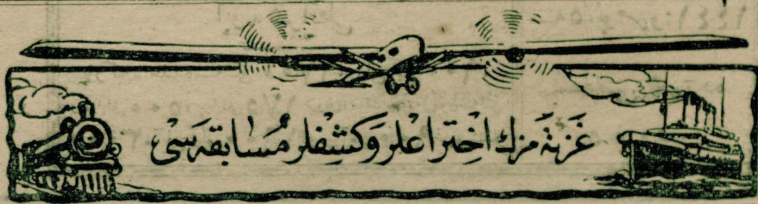 غَزَتَه مزك اخِتراعلر وَكشِفلر مُسابقه‌سی